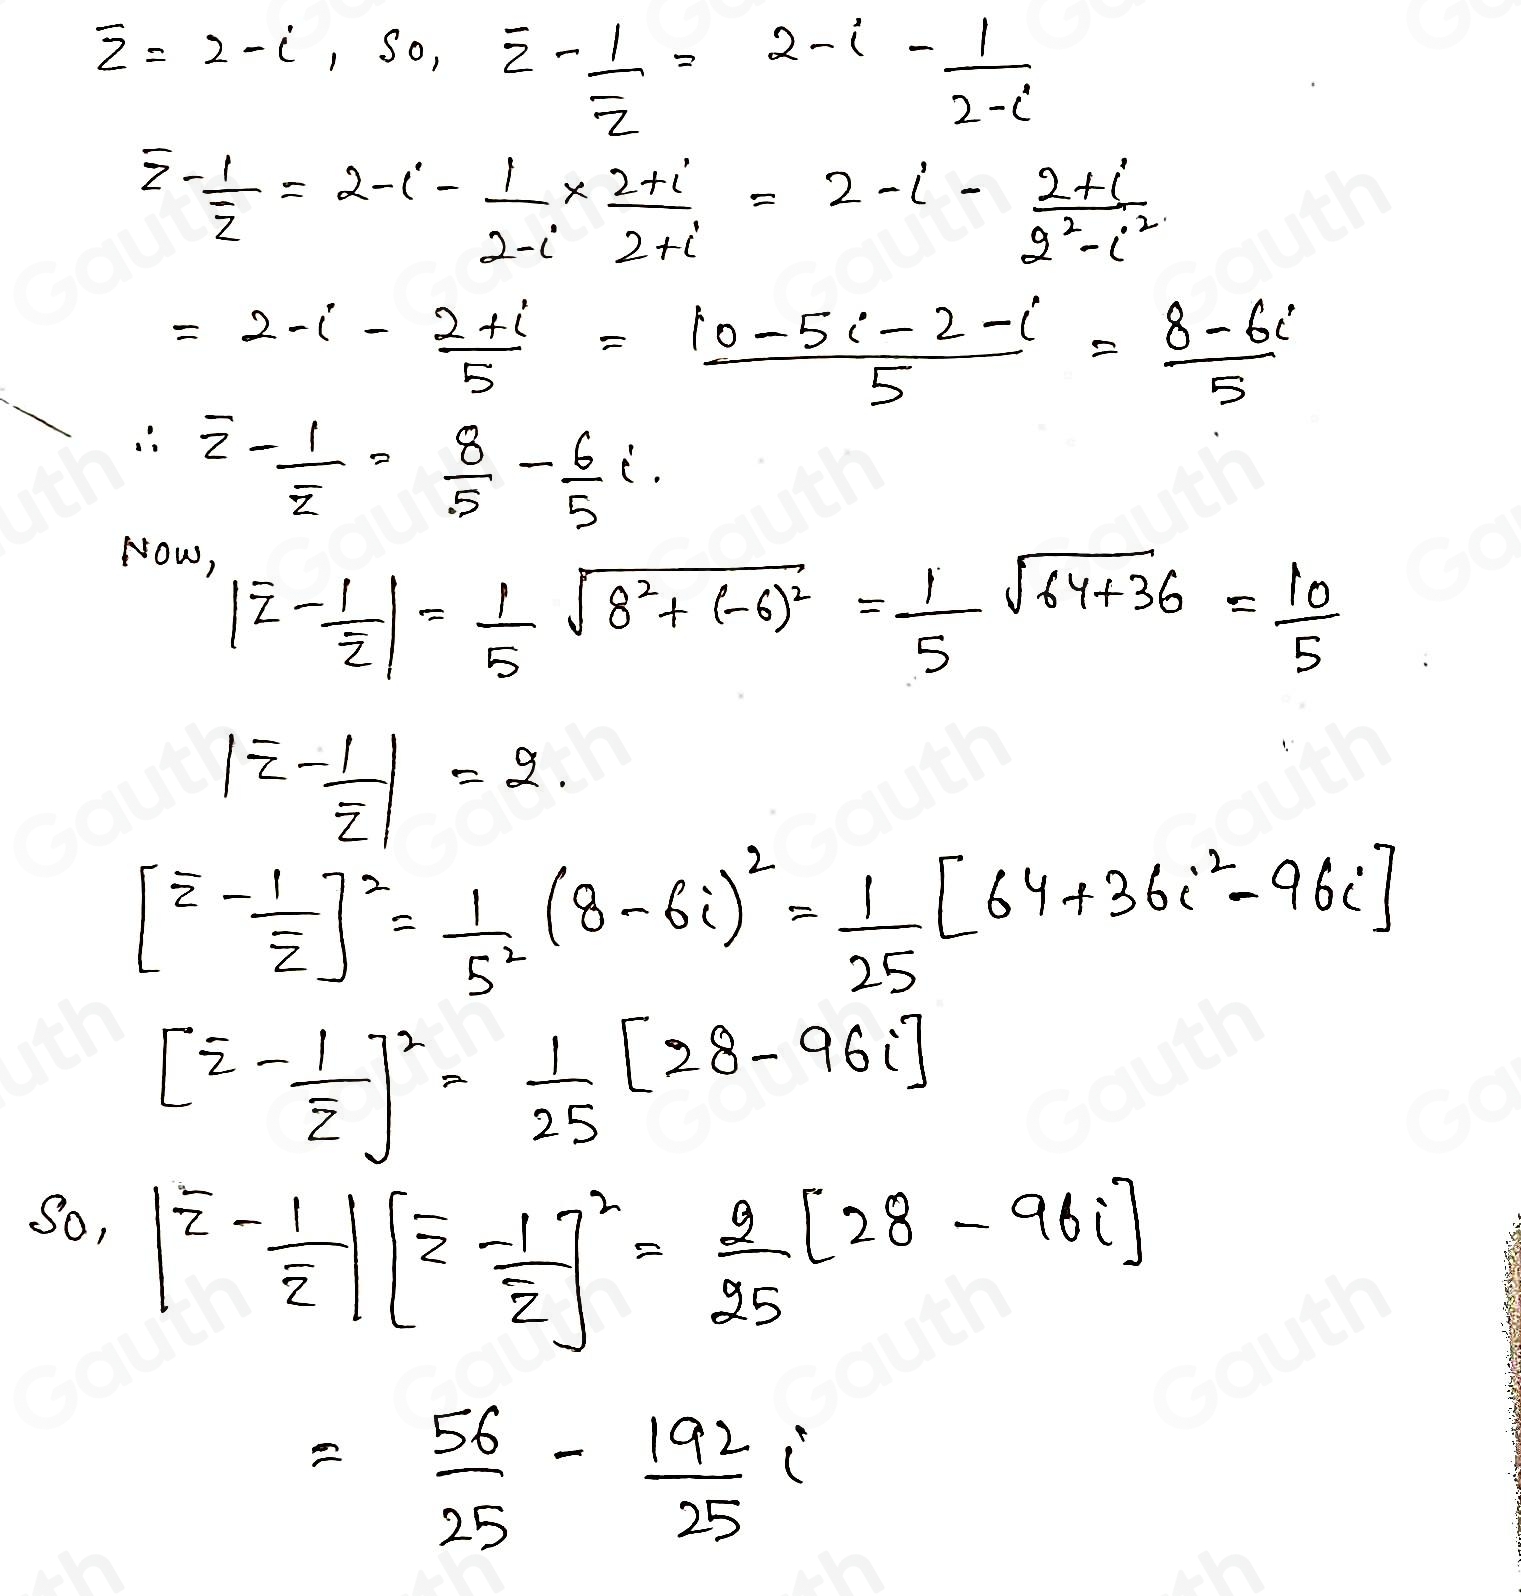 z̄ = 2-i, So, z̄ - 1/z̄ = 2-i - 1/(2-i)
z̄ - 1/z̄ = 2-i - 1/(2-i) × (2+i)/(2+i) = 2-i - (2+i)/(2²-i²)
= 2-i - (2+i)/5 = (10-5i-2-i)/5 = (8-6i)/5
∴ z̄ - 1/z̄ = 8/5 - 6/5 i.
Now,
|z̄ - 1/z̄| = 1/5 √(8²+(-6)²) = 1/5 √(64+36) = 10/5
|z̄ - 1/z̄| = 2.
[z̄ - 1/z̄]² = 1/5² (8-6i)² = 1/25 [64+36i²-96i]
[z̄ - 1/z̄]² = 1/25 [28-96i]
So, |z̄ - 1/z̄| [z̄ - 1/z̄]² = 2/25 [28 - 96i]
= 56/25 - 192/25 i